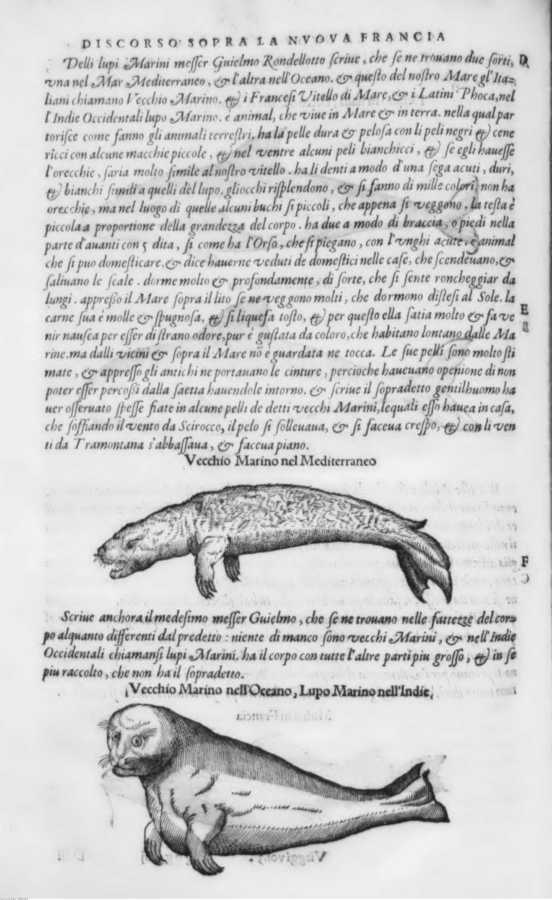 DISCORSO SOPRA LA NVOVA FRANCIA
Delli lupi Marini messer Guielmo Rondellotto scriue, che se ne trouano due sorti, D
vna nel Mar Mediterraneo, & l'altra nell'Oceano. & questo del nostro Mare gl'Ita-
liani chiamano Vecchio Marino. & i Francesi Vitello di Mare, & i Latini Phoca, nel
l'Indie Occidentali lupo Marino. è animal, che viue in Mare & in terra. nella qual par
torisce come fanno gli animali terrestri. ha la pelle dura & pelosa con li peli negri & cene
ricci con alcune macchie piccole, & nel ventre alcuni peli bianchicci, & se egli hauesse
l'orecchie, saria molto simile al nostro vitello. ha li denti a modo d'una sega acuti, duri,
& bianchi simili a quelli del lupo. gliocchi risplendono, & si fanno di mille colori, non ha
orecchie, ma nel luogo di quelle alcuni buchi si piccoli, che appena si veggono. la testa è
piccola a proportione della grandezza del corpo. ha due a modo di braccia, o piedi nella
parte d'auanti con 5 dita, si come ha l'Orso, che si piegano, con l'vnghi acute. è animal
che si puo domesticare, & dice hauerne veduti de domestici nelle case, che scendeuano, &
saliuano le scale. dorme molto & profondamente, di sorte, che si sente roncheggiar da
lungi. appresso il Mare sopra il lito se ne veggono molti, che dormono distesi al Sole. la E
carne sua è molle & spugnosa, & si liquefa tosto, & per questo ella satia molto & fa ve
nir nausea per esser di strano odore, pur è gustata da coloro, che habitano lontano dalle Ma
rine. ma dalli vicini & sopra il Mare nō è guardata ne tocca. Le sue pelli sono molto sti
mate, & appresso gli antichi ne portauano le cinture, percioche haueuano openione di non
poter esser percossi dalla saetta hauendole intorno. & scriue il sopradetto gentilhuomo ha
uer osseruato spesse fiate in alcune pelli de detti vecchi Marini, lequali esso hauea in casa,
che soffiando il vento da Scirocco, il pelo si solleuaua, & si faceua crespo, & con li ven
ti da Tramontana s'abbassaua, & faceua piano.
Vecchio Marino nel Mediterraneo
F
Scriue anchora il medesimo messer Guielmo, che se ne trouano nelle fattezze del cor-
po alquanto differenti dal predetto: niente di manco sono vecchi Marini, & nell'Indie
Occidentali chiamansi lupi Marini. ha il corpo con tutte l'altre parti piu grosso, & in se
piu raccolto, che non ha il sopradetto.
Vecchio Marino nell'Oceano, Lupo Marino nell'Indie,